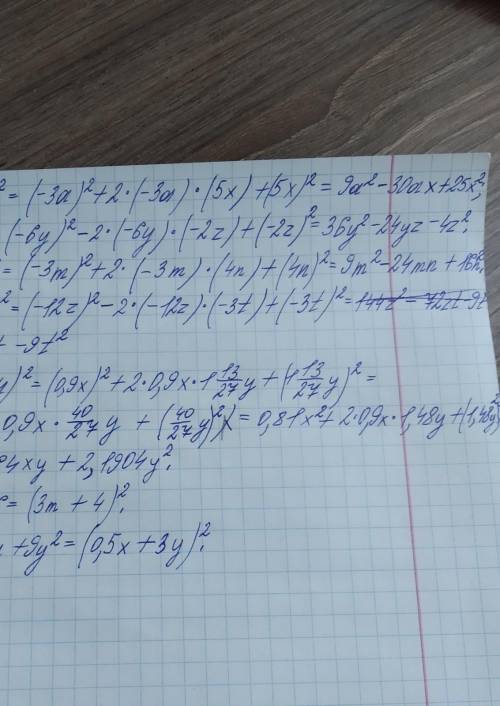 ² = (-3a)² + 2·(-3a)·(5x) + (5x)² = 9a² - 30ax + 25x²;
(-6y)² - 2·(-6y)·(-2z) + (-2z)² = 36y² - 24yz - 4z²;
= (-3m)² + 2·(-3m)·(4n) + (4n)² = 9m² - 24mn + 16n²;
² = (-12z)² - 2·(-12z)·(-3t) + (-3t)² =
- 9t²
y)² = (0,9x)² + 2·0,9x·1 13/27 y + (1 13/27 y)² =
0,9x · 40/27 y + (40/27 y)² = 0,81x² + 2·0,9x·1,48y + (1,48y)²
4xy + 2,1904y²;
= (3m + 4)²;
+ 9y² = (0,5x + 3y)²;